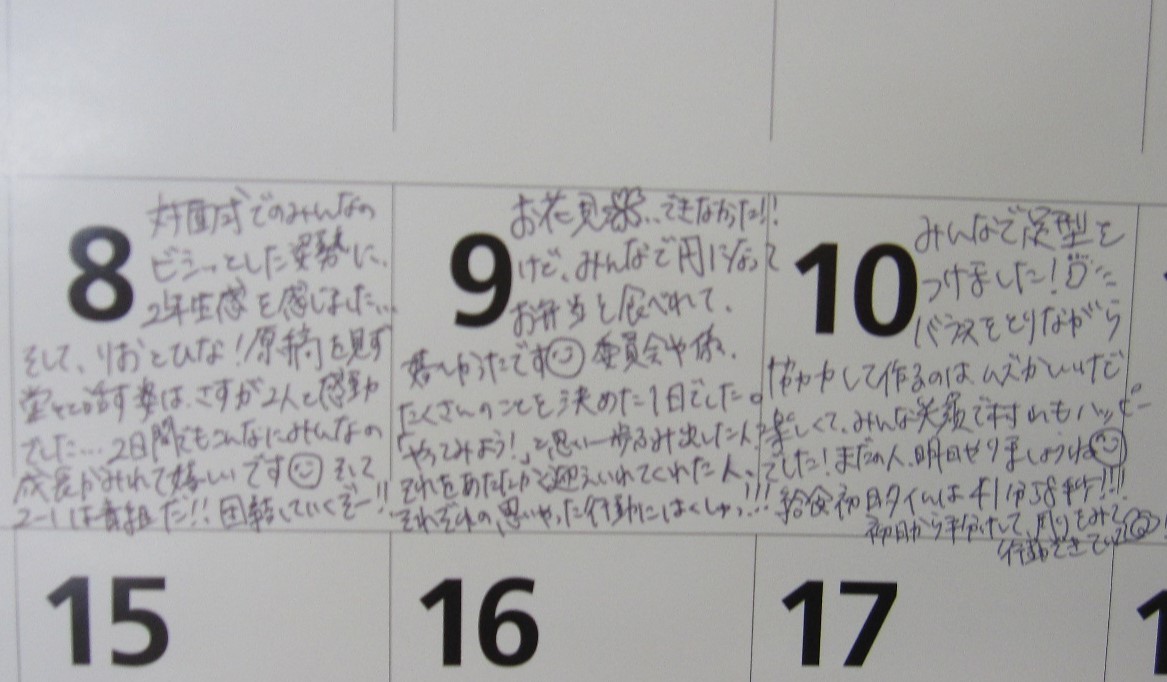 8
対面式でのみんなの
ビシーっとした姿勢に、
2年生感を感じました…
そして、りおとひな！原稿を見ず
堂々と話す姿は、さすが2人と感動
でした…2日間でもこんなにみんなの
成長がみれて嬉しいです☺そして
2-1は青組だ!!団結していくぞー!!
9
お花見🌸..できなかった!!
けど、みんなで円になって
お弁当を食べれて、
嬉しかったです☺委員会や係、
たくさんのことを決めた1日でした。
「やってみよう!」と思い一歩ふみ出した人、
それをあたたかく迎えいれてくれた人、
それぞれの、思いやった行動にはくしゅっ!!!
10
みんなで足型を
つけました！
バランスをとりながら
協力して作るのは、ムズかしいけど
楽しくて、みんな笑顔で村山もハッピー
でした！まだの人、明日やりましょうね☺
給食初日タイムは41分58秒!!!
初日から手分けして、周りをみて
行動できてい
15
16
17
1